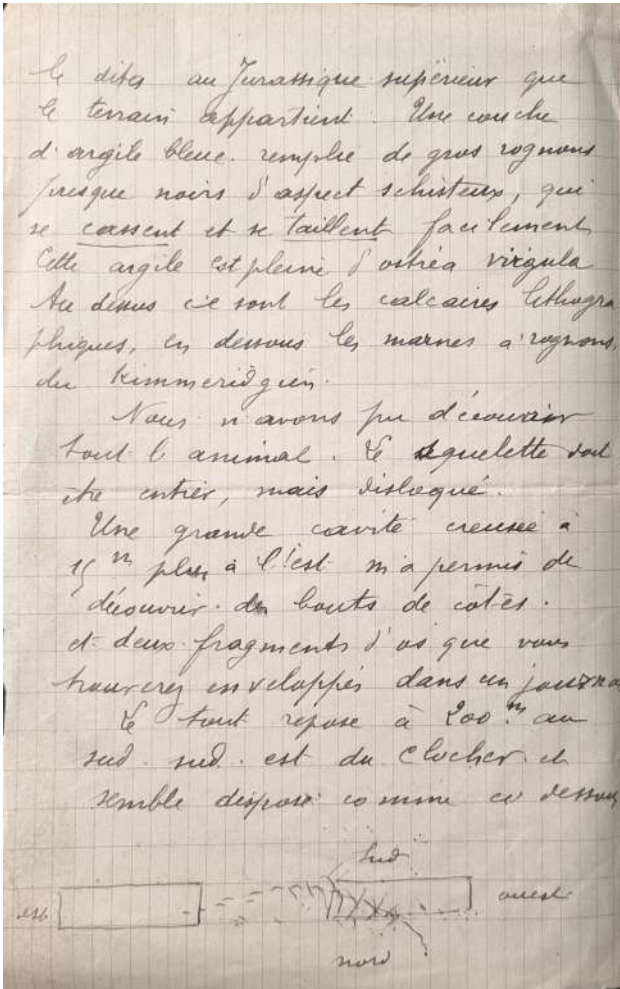 le dites au Jurassique supérieur que
le terrain appartient. Une couche
d'argile bleue remplie de gros rognons
presque noirs d'aspect schisteux, qui
se cassent et se taillent facilement
Cette argile est pleine d'ostréa virgula
Au dessus ce sont les calcaires lithogra
phiques, en dessous les marnes à rognons,
du Kimmeridgien.
Nous n'avons pu découvrir
tout l'animal. Le squelette doit
être entier, mais disloqué.
Une grande cavité creusée à
15 m plus à l'est m'a permis de
découvrir des bouts de côtes.
et deux fragments d'os que vous
trouverez enveloppés dans un journa
Le tout repose à 200 m au
sud. sud. est du clocher et
semble disposé comme ci dessous
sud
est ouest
nord